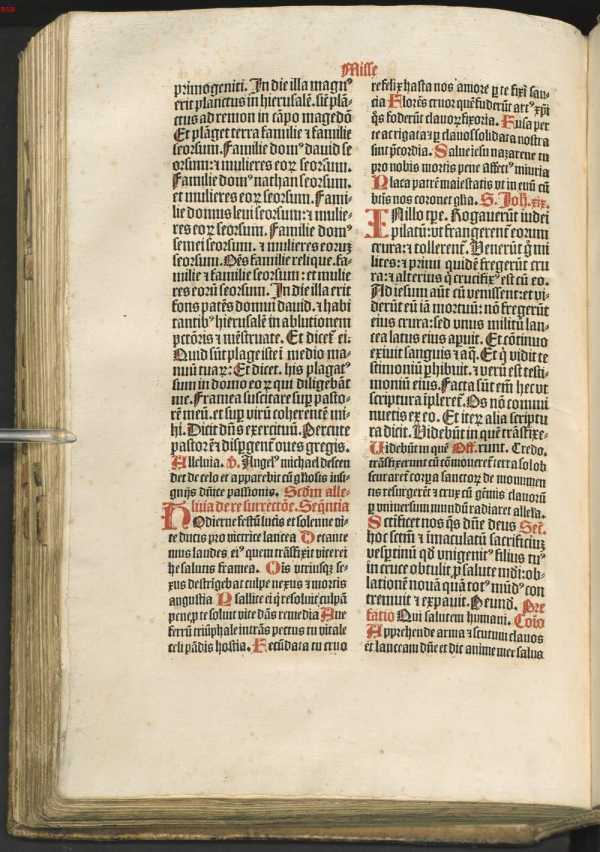 Misse
primogeniti. In die illa magnꝰ
erit planctus in hierusalē. sic̄ plā-
ctus ad remon in cāpo magedō
Et plāget terra familie ⁊ familie
seorsum. Familie domꝰ dauid se
orsum: ⁊ mulieres eoꝝ seorsum.
Familie domꝰ nathan seorsum.
et mulieres eoꝝ seorsum. Fami-
lie domus leui seorsum: ⁊ mulie-
res eoꝝ seorsum. Familie domꝰ
semei seorsum. ⁊ mulieres eoruꝫ
seorsum. Oēs familie relique. fa-
milie ⁊ familie seorsum: et mulie
res eorū seorsum. In die illa erit
fons patēs domui dauid. ⁊ habi
tantibꝰ hierusalē in ablutionem
pctōris ⁊ mēstruate. Et dicet̄ ei:
Quid sūt plage iste ī medio ma-
nuū tuaꝝ: Et dicet. his plagatꝰ
sum in domo eoꝝ qui diligebāt
me. Framea suscitare suꝑ pasto-
rē meū. et suꝑ virū coherentē mi-
hi. Dicit dn̄s exercituū. Percute
pastorē ⁊ dispgent̄ oues gregis.
Alleluia. ꝟ. Angelꝰ michael descen
det de celo et apparebit cū gl̄iosis insi-
gnijs dn̄ice passionis. Scd̄m alle-
luia de resurrectōe. Seq̄ntia
Hodierne festū lucis et solenne vi-
te ducis pro victrice lancea Decante
mus laudes eiꝰ quem trāsfixit vite rei
he salutis framea. Uis vtriusqꝫ se-
xus destrīgebat culpe nexus ⁊ mortis
angustia Psallite ei q̄ resoluit culpā
peneqꝫ te soluit vite dās remedia Aue
ferrū triūphale intrās pectus tu vitale
celi pādis hostia. Fecūdata tu cruo
re felix hasta nos amore ꝑ te fixi sau-
cia Flores cruor quē fuderūt artꝰ xp̄i
q̄s foderūt clauoꝝ fixoria. Fusa per
te ac rigata et ꝑ clauos solidata nostra
sint p̄cordia. Salue iesu nazarene tu
pro nobis mortis pene affectꝰ iniuria
Placa patrē maiestatis vt in euū cū
btīs nos coronet gl̄ia. S. Joh. xix.
IN illo tp̄e. Rogauerūt iudei
pilatū: vt frangerent̄ eorum
crura: ⁊ tollerent̄. Venerūt g̊ mi
lites: et primi quidē fregerūt cru
ra: ⁊ alterius q̄ crucifixꝰ est cū eo.
Ad iesum aūt cū venissent: et vi-
derūt eū iā mortuū: nō fregerūt
eius crura: sed vnus militū lan-
cea latus eius aꝑuit. Et cōtinuo
exiuit sanguis ⁊ aq̄. Et q̄ vidit te
stimoniū ꝑhibuit. ⁊ verū est testi-
moniū eius. Facta sūt em̄ hec vt
scriptura īpleret̄. Os nō commi
nuetis ex eo. Et iteꝝ alia scriptu
ra dicit. Videbūt in quē trāsfixe-
Uidebūt in quē Off. runt. Credo.
trāsfixerunt cū cōmoueret̄ terra sol ob
scuraret̄ corꝑa sanctoꝝ de monumen
tis resurgerēt ⁊ crux cū gēmis clauorū
ꝑ vniuersum mundū radiaret alle͡la.
Sctificet nos q̄s dn̄e deus Sec̄.
hoc sctm̄ ⁊ īmaculatū sacrificiuꝫ
vesꝑtinū qd̄ vnigenitꝰ filius tuꝰ
in cruce obtulit ꝓ salute mdi: ob-
lationē nouā quā totꝰ mūdꝰ con
tremuit ⁊ expauit. Pe eund̄. Pre
fatio Qui salutem humani. Cōio
Apprehende arma ⁊ scutum clauos
et lanceam dn̄e et dic anime mee salus